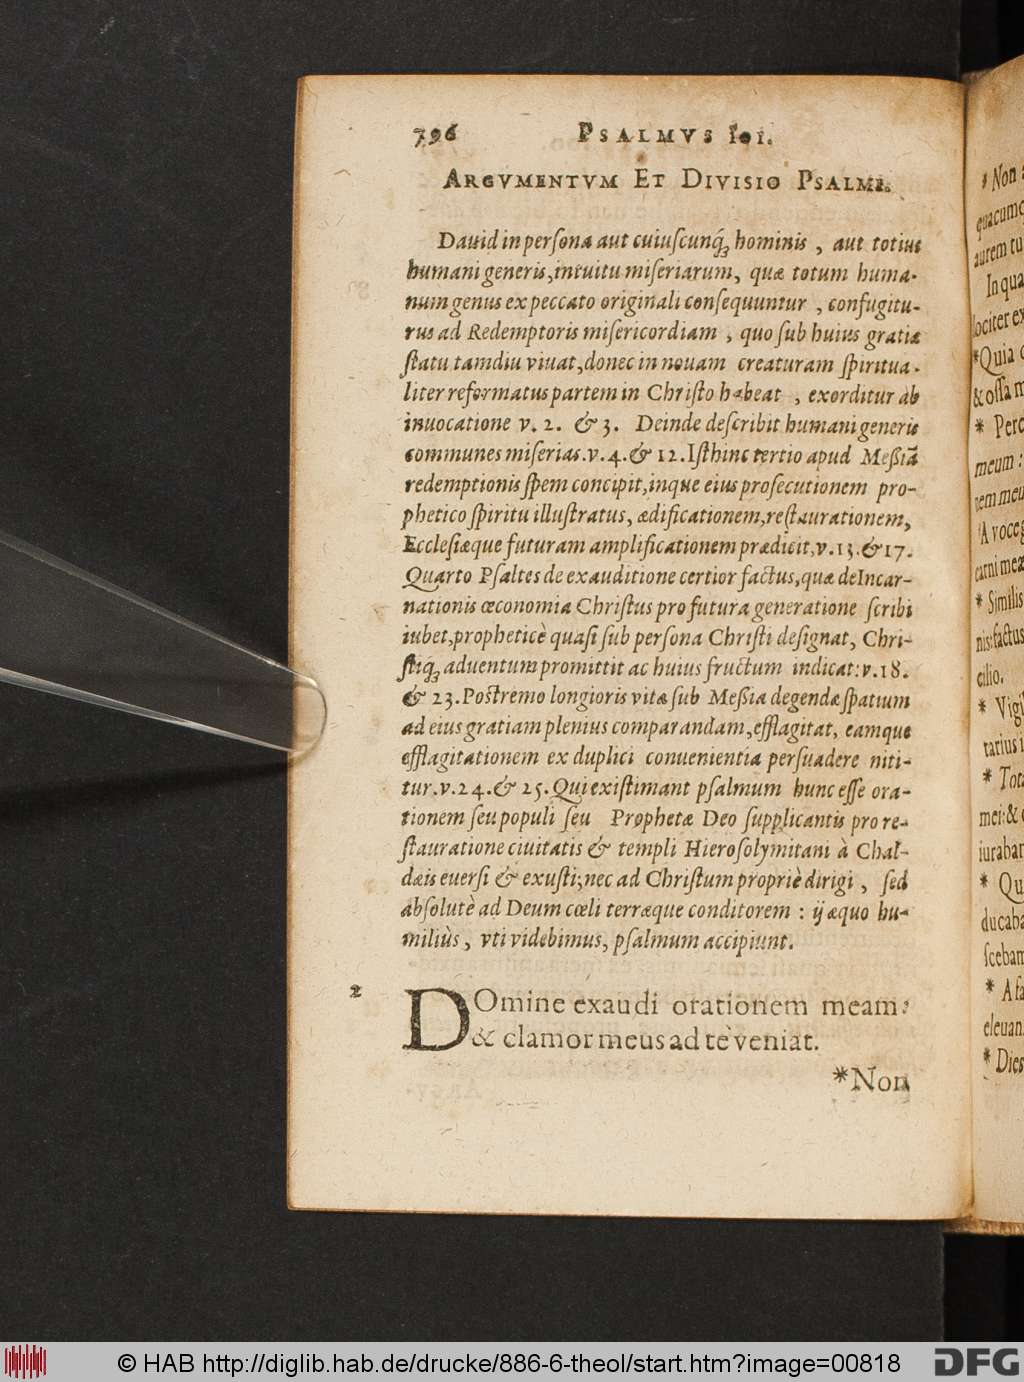 796 PSALMVS 101.
ARGVMENTVM ET DIVISIO PSALMI.
Dauid in persona aut cuiuscunq́ꝫ hominis, aut totius
humani generis, intuitu miseriarum, quæ totum huma-
num genus ex peccato originali consequuntur, confugitu-
rus ad Redemptoris misericordiam, quo sub huius gratiæ
statu tamdiu viuat, donec in nouam creaturam spiritua-
liter reformatus partem in Christo habeat, exorditur ab
inuocatione v. 2. & 3. Deinde describit humani generis
communes miserias. v. 4. & 12. Isthinc tertio apud Meßiã
redemptionis spem concipit, inque eius prosecutionem pro-
phetico spiritu illustratus, ædificationem, restaurationem,
Ecclesiæque futuram amplificationem prædicit, v. 13. & 17.
Quarto Psaltes de exauditione certior factus, quæ de Incar-
nationis œconomia Christus pro futura generatione scribi
iubet, propheticè quasi sub persona Christi designat, Chri-
stiq́ꝫ aduentum promittit ac huius fructum indicat: v. 18.
& 23. Postremo longioris vitæ sub Meßia degendæ spatium
ad eius gratiam plenius comparandam, efflagitat, eamque
efflagitationem ex duplici conuenientia persuadere niti-
tur. v. 24. & 25. Qui existimant psalmum hunc esse ora-
tionem seu populi seu Prophetæ Deo supplicantis pro re-
stauratione ciuitatis & templi Hierosolymitani à Chal-
dæis euersi & exusti; nec ad Christum propriè dirigi, sed
absolutè ad Deum cœli terræque conditorem: ij æquo hu-
miliùs, vti videbimus, psalmum accipiunt.
2 DOmine exaudi orationem meam:
& clamor meus ad te veniat.
*Non
* Non
quacumq
aurem tu
In qua
lociter ex
*Quia
& ossa m
* Perc
meum:
nem meu
A voce g
carni meæ
* Similis
nis: factus
cilio.
* Vigi
tarius i
* Tota
mei: &
iurabant
* Qu
ducaba
sceban
* A fa
eleuan
* Dies
© HAB http://diglib.hab.de/drucke/886-6-theol/start.htm?image=00818
DFG